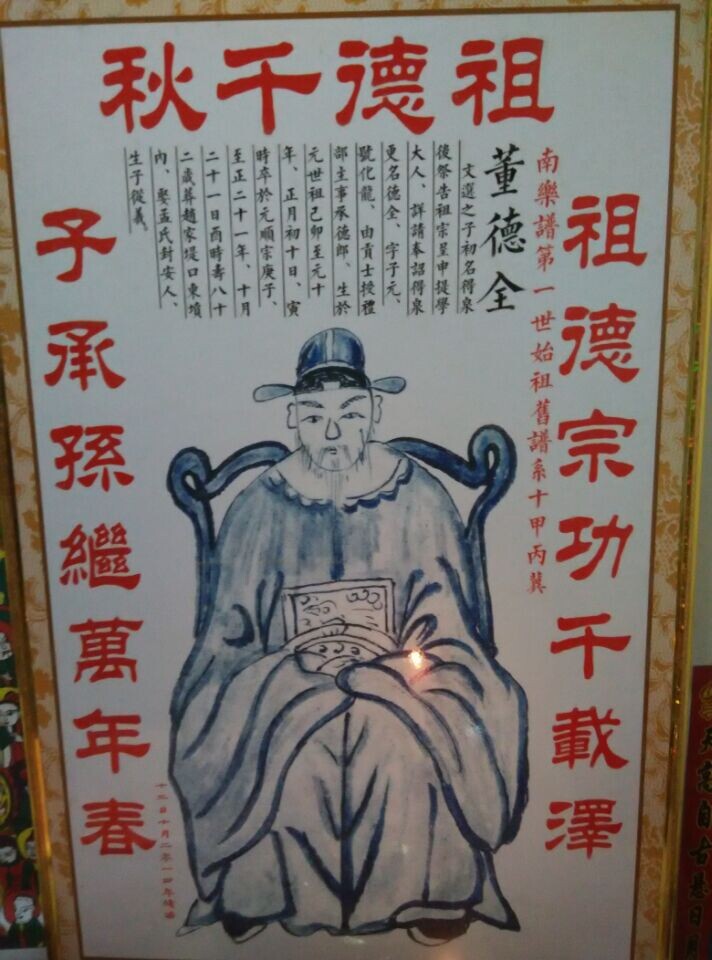 祖德千秋
祖德宗功千載澤
南樂譜第一世始祖舊譜系十甲丙冀
董德全
文選之子初名得泉
後祭告祖宗呈申提學
大人、詳請奉詔得泉
更名德全、字子元、
號化龍、由貢士授禮
部主事承德郎、生於
元世祖己卯至元十
年、正月初十日、寅
時卒於元順宗庚子、
至正二十一年、十月
二十一日酉時壽八十
二歲葬趙家堤口東墳
內、娶孟氏封安人、
生子從義、
子承孫繼萬年春
十二日十月二零一四年
天高自古懸日月